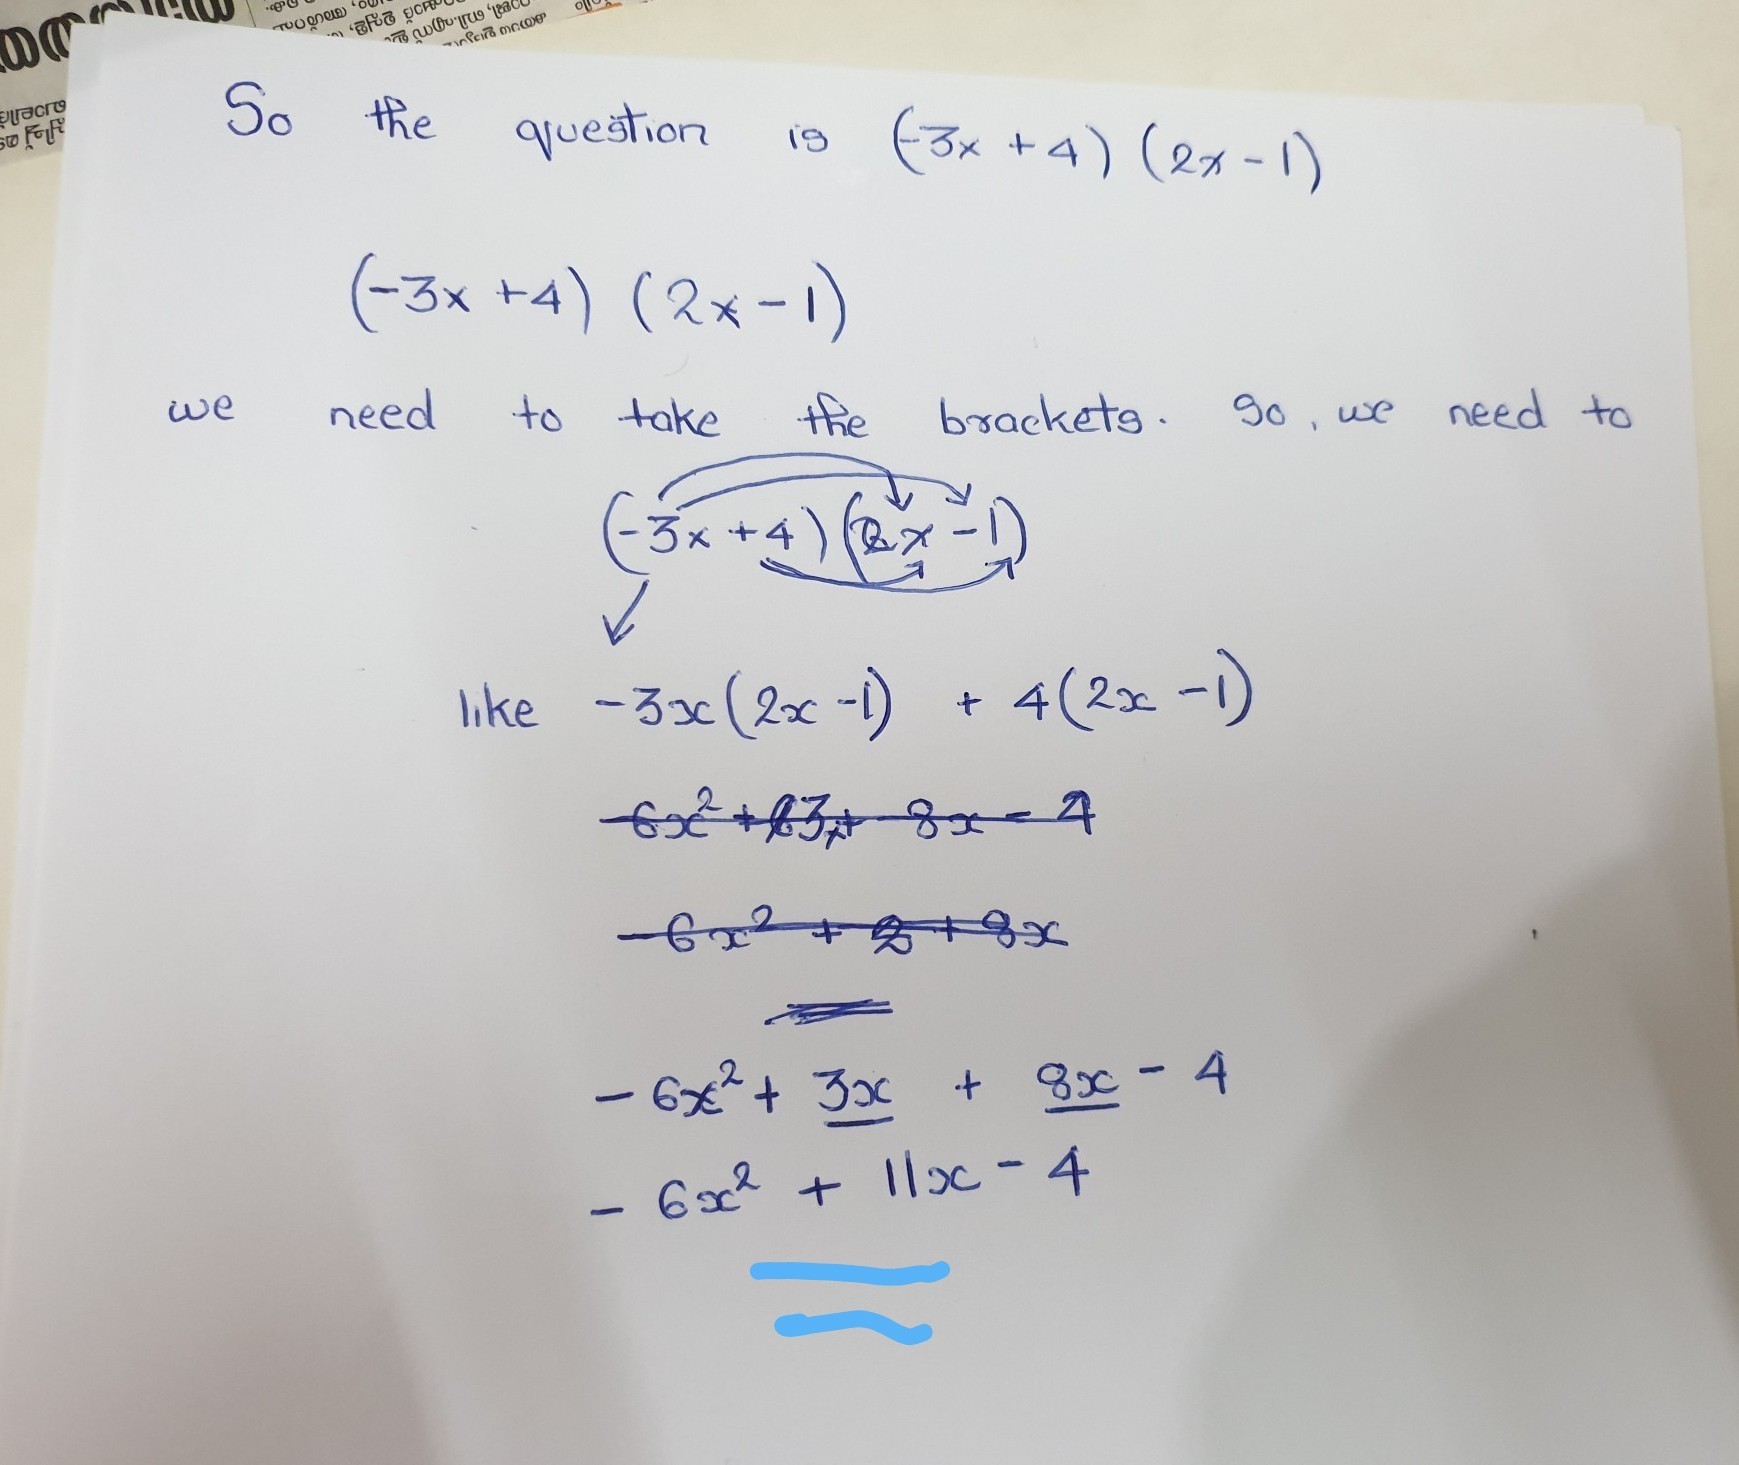 So the question is (-3x + 4) (2x - 1)
(-3x + 4) (2x - 1)
we need to take the brackets. So, we need to
(-3x + 4) (2x - 1)
like -3x(2x - 1) + 4(2x - 1)
- 6x² + 3x + 8x - 4
- 6x² + 11x - 4